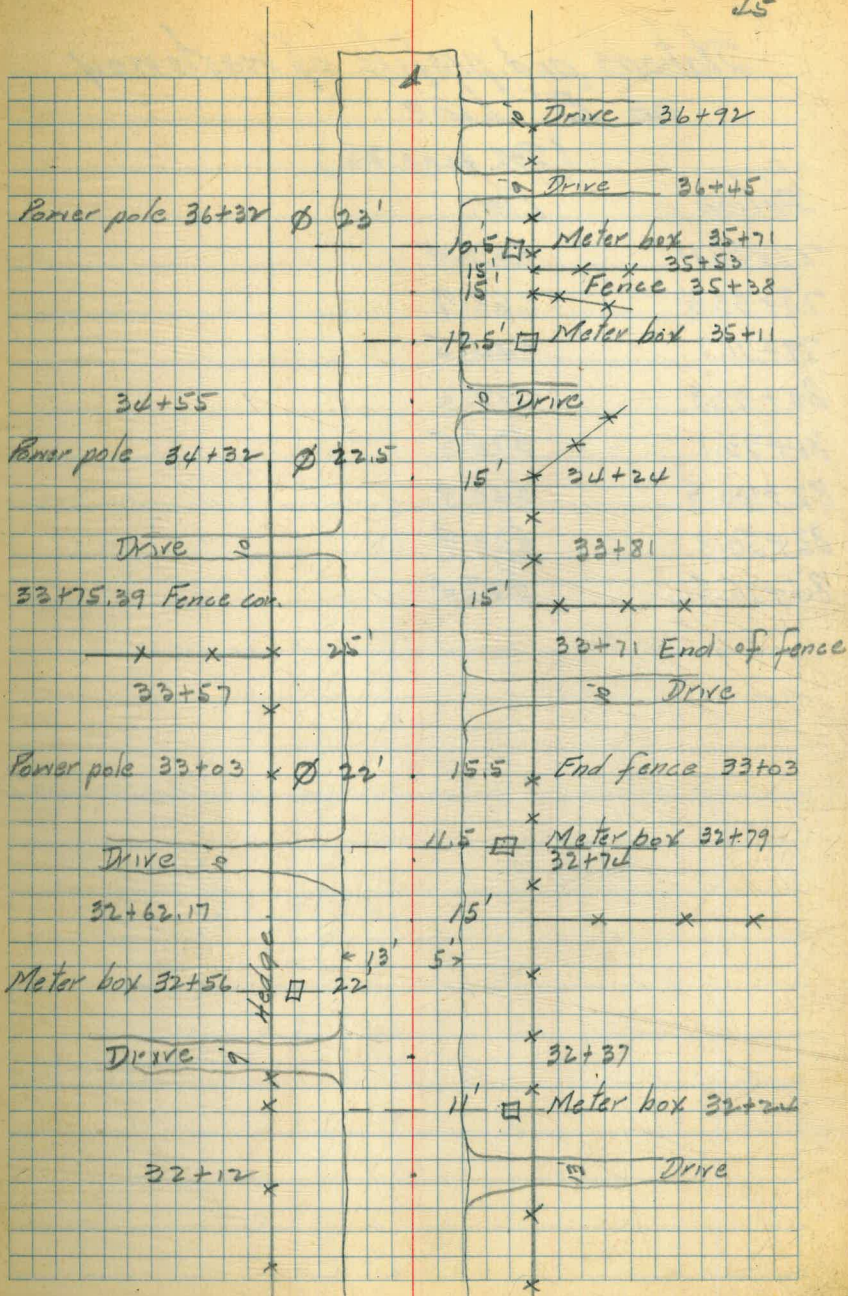 Drive 36+92
10
Drive 36+45
9
Power pole 36+32 Ø 23'
10.5' Meter box 35+71
15' 35+53
15' Fence 35+38
12.5' Meter box 35+11
34+55 10 Drive
Power pole 34+32 Ø 22.5
15' 34+24
Drive 10 33+81
33+75.39 Fence cor. 15'
25' 33+71 End of fence
33+57 10 Drive
Power pole 33+03 Ø 22' 15.5 End fence 33+03
11.5 Meter box 32+79
Drive 10 32+74
32+62.17 15'
13' 5'
Hedge
Meter box 32+56 22'
Drive 9 32+37
11' Meter box 32+24
32+12 13 Drive